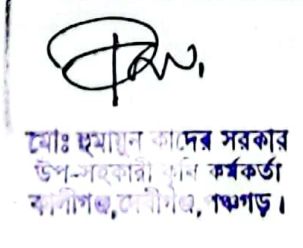 মোঃ হুমায়ুন কাদের সরকার
উপ-সহকারী কৃষি কর্মকর্তা
কালীগঞ্জ, দেবীগঞ্জ, পঞ্চগড়।